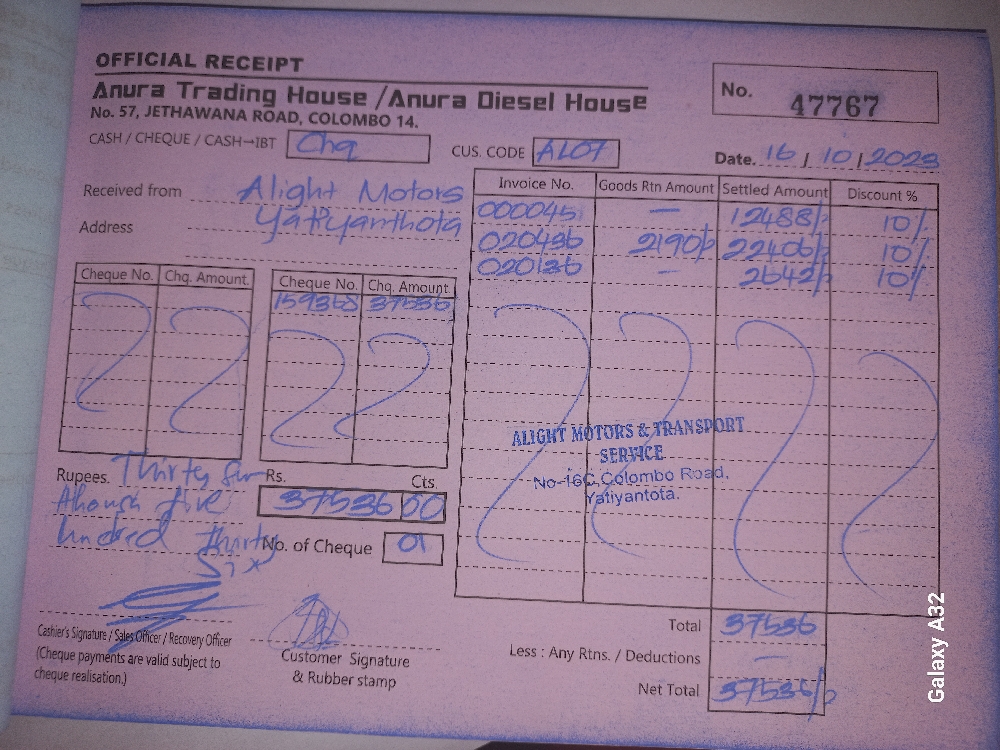 OFFICIAL RECEIPT
Anura Trading House / Anura Diesel House
No. 57, JETHAWANA ROAD, COLOMBO 14.
No. 47767
CASH / CHEQUE / CASH→IBT Chq
CUS. CODE AL07
Date. 16 / 10 / 2023
Received from Alight Motors
Address Yatiyanthota
Invoice No. Goods Rtn Amount Settled Amount Discount %
000045 — 12488/= 10%
020436 2190/= 22406/= 10%
020136 - 2642/= 10%
Cheque No. Chq. Amount Cheque No. Chq. Amount
159368 37536
ALIGHT MOTORS & TRANSPORT
SERVICE
No-16C, Colombo Road,
Yatiyantota.
Rupees. Thirty
five
hundred Thirty
Six
Rs. Cts.
37536 00
No. of Cheque 01
Cashier's Signature / Sales Officer / Recovery Officer
(Cheque payments are valid subject to
cheque realisation.)
Customer Signature
& Rubber stamp
Total 37536
Less : Any Rtns. / Deductions —
Net Total 37536/=
Galaxy A32